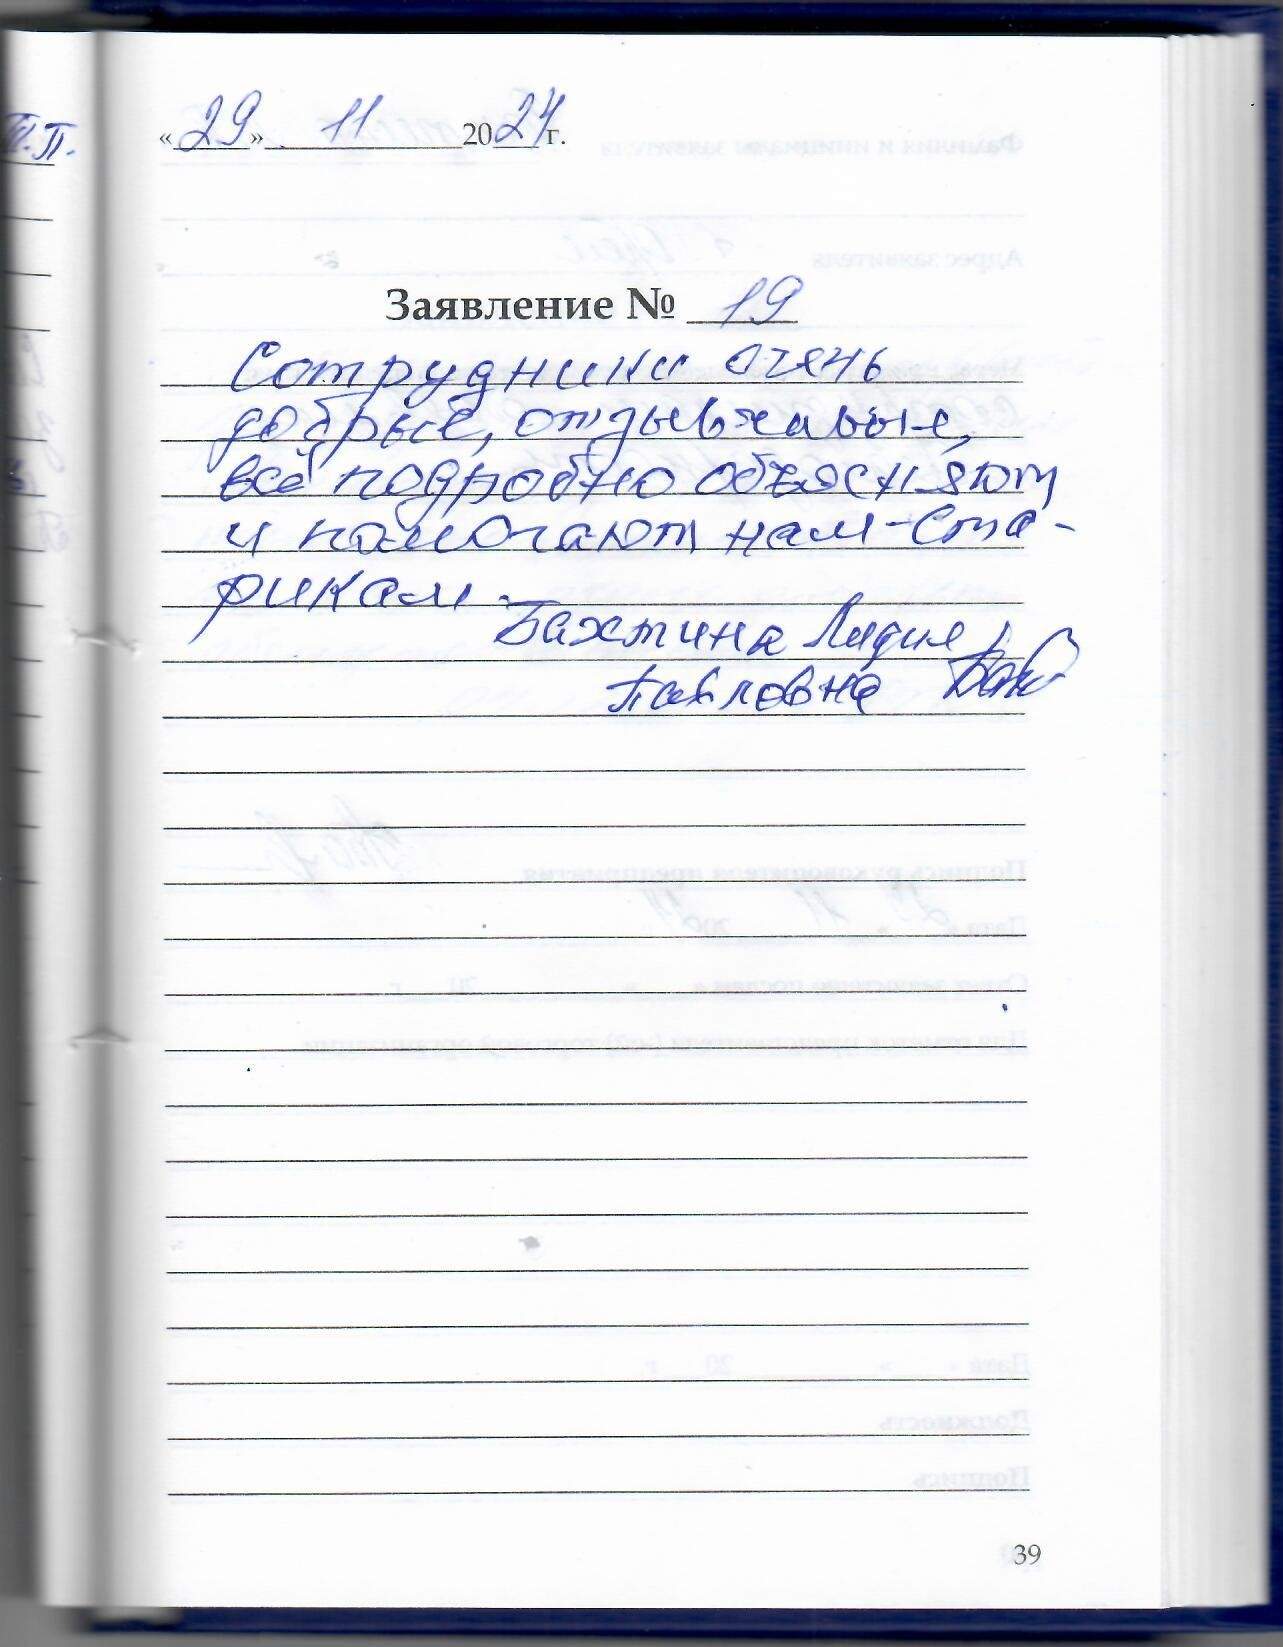 Т.П.
«29» 11 2024 г.
Заявление № 19
Сотрудники очень
добрые, отзывчивые,
всё подробно объясняют
и помогают нам-ста-
рикам.
Бахтина Лидия
Павловна
39